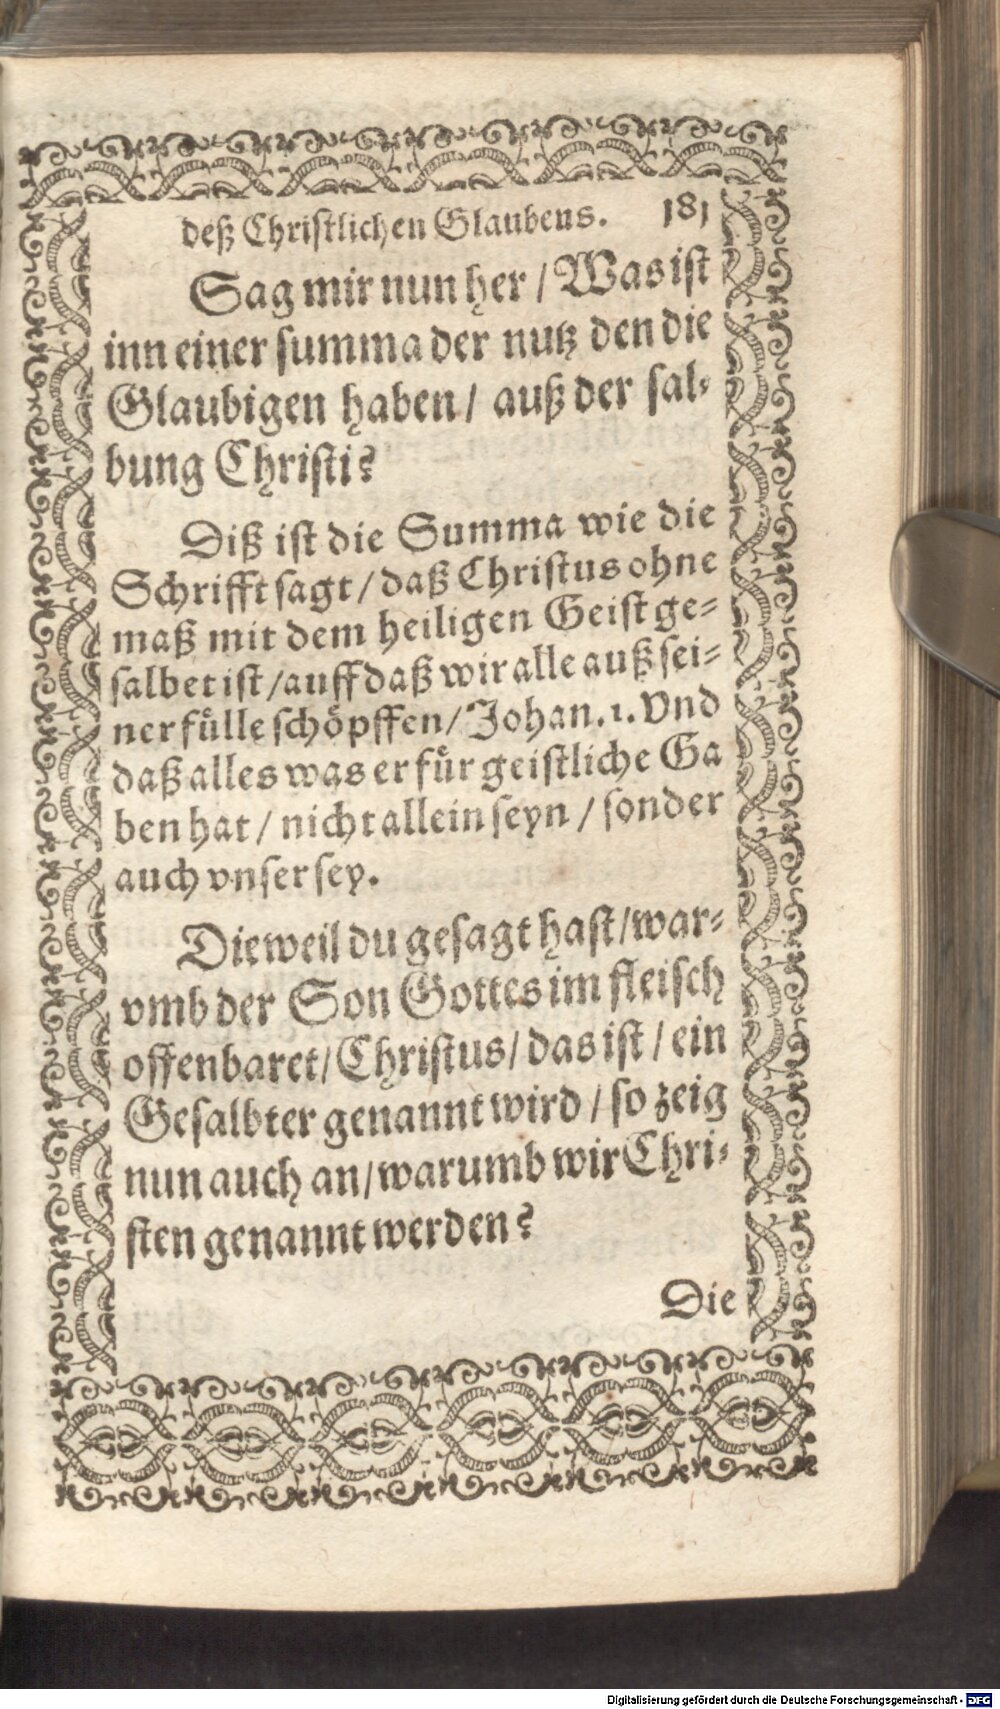 deß Christlichen Glaubens. 181
Sag mir nun her / Was ist
inn einer summa der nutz den die
Glaubigen haben / auß der sal-
bung Christi?
Diß ist die Summa wie die
Schrifft sagt / daß Christus ohne
maß mit dem heiligen Geist ge-
salbet ist / auff daß wir alle auß sei-
ner fuͤlle schoͤpffen / Johan. 1. Vnd
daß alles was er fuͤr geistliche Ga
ben hat / nicht allein seyn / sonder
auch vnser sey.
Dieweil du gesagt hast / war-
vmb der Son Gottes im fleisch
offenbaret / Christus / das ist / ein
Gesalbter genannt wird / so zeig
nun auch an / warumb wir Chri-
sten genannt werden?
Die
Digitalisierung gefördert durch die Deutsche Forschungsgemeinschaft - DFG